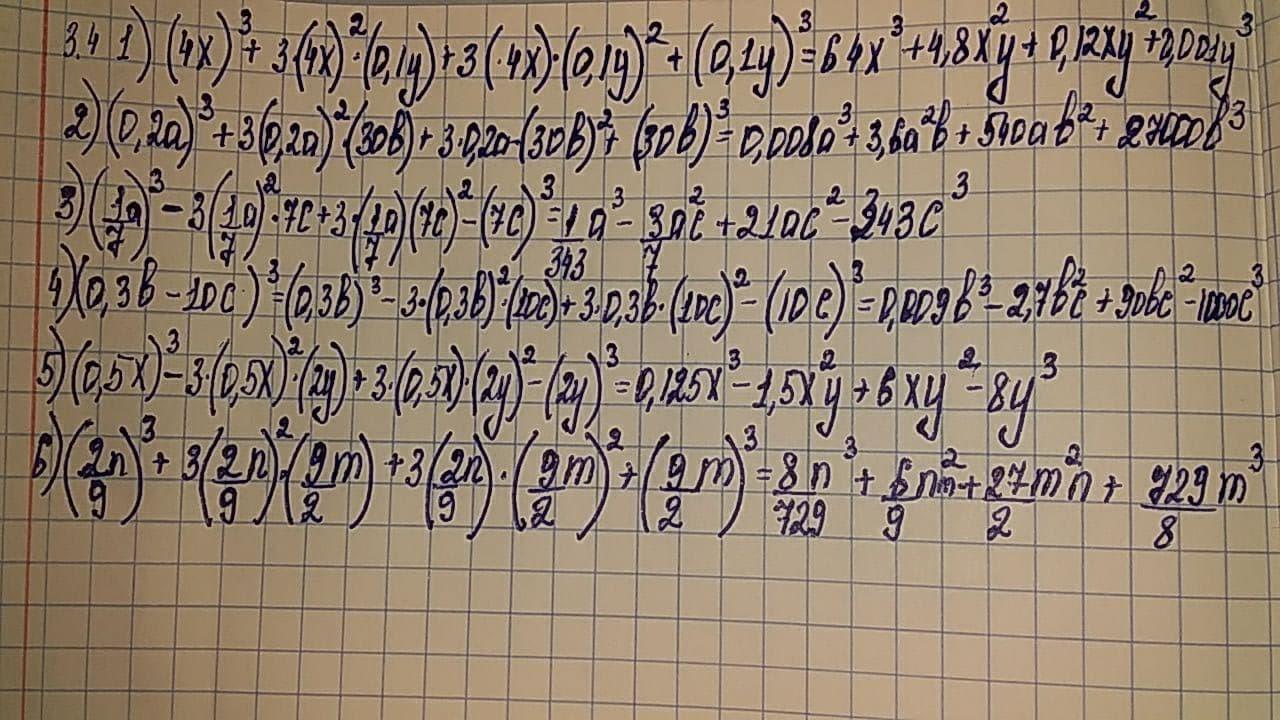 3.4 1) (4x)³ + 3(4x)²·(0,1y) + 3(·4x)·(0,1y)² + (0,1y)³ = 64x³ + 4,8x²y + 0,12xy² + 0,001y³
2) (0,2a)³ + 3(0,2a)²·(30b) + 3·0,2a·(30b)² + (30b)³ = 0,008a³ + 3,6a²b + 540ab² + 27000b³
3) (1/7a)³ - 3(1/7a)²·7c + 3·(1/7a)(7c)² - (7c)³ = 1/343a³ - 3/7a²c + 21ac² - 343c³
4) (0,3b - 10c)³ = (0,3b)³ - 3·(0,3b)²·(10c) + 3·0,3b·(10c)² - (10c)³ = 0,009b³ - 2,7b²c + 90bc² - 1000c³
5) (0,5x)³ - 3·(0,5x)²·(2y) + 3·(0,5x)·(2y)² - (2y)³ = 0,125x³ - 1,5x²y + 6xy² - 8y³
6) (2n/9)³ + 3(2n/9)²·(9m/2) + 3(2n/9)·(9m/2)² + (9m/2)³ = 8n³/729 + 6n²m/9 + 27m²n/2 + 729m³/8